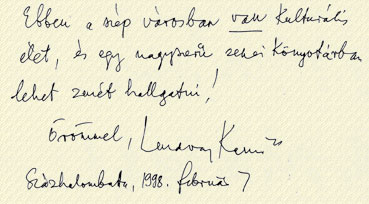 Ebben a szép városban van kulturális
élet, és egy nagyszerű zenei könyvtárban
lehet zenét hallgatni!
Örömmel, Lendvay Kamilló
Százhalombatta, 1998. február 7